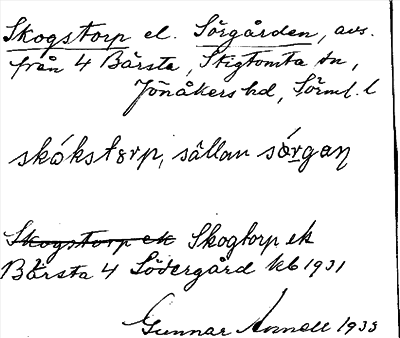 Skogstorp el. Sörgården, avs.
från 4 Bärsta, Stigtomta sn,
Jönåkers hd, Sörml. l
skókstorp, sällan sórgaɳ
Skogstorp ek Skogtorp ek
Bärsta 4 Södergård kb 1931
Gunnar Annell 1933